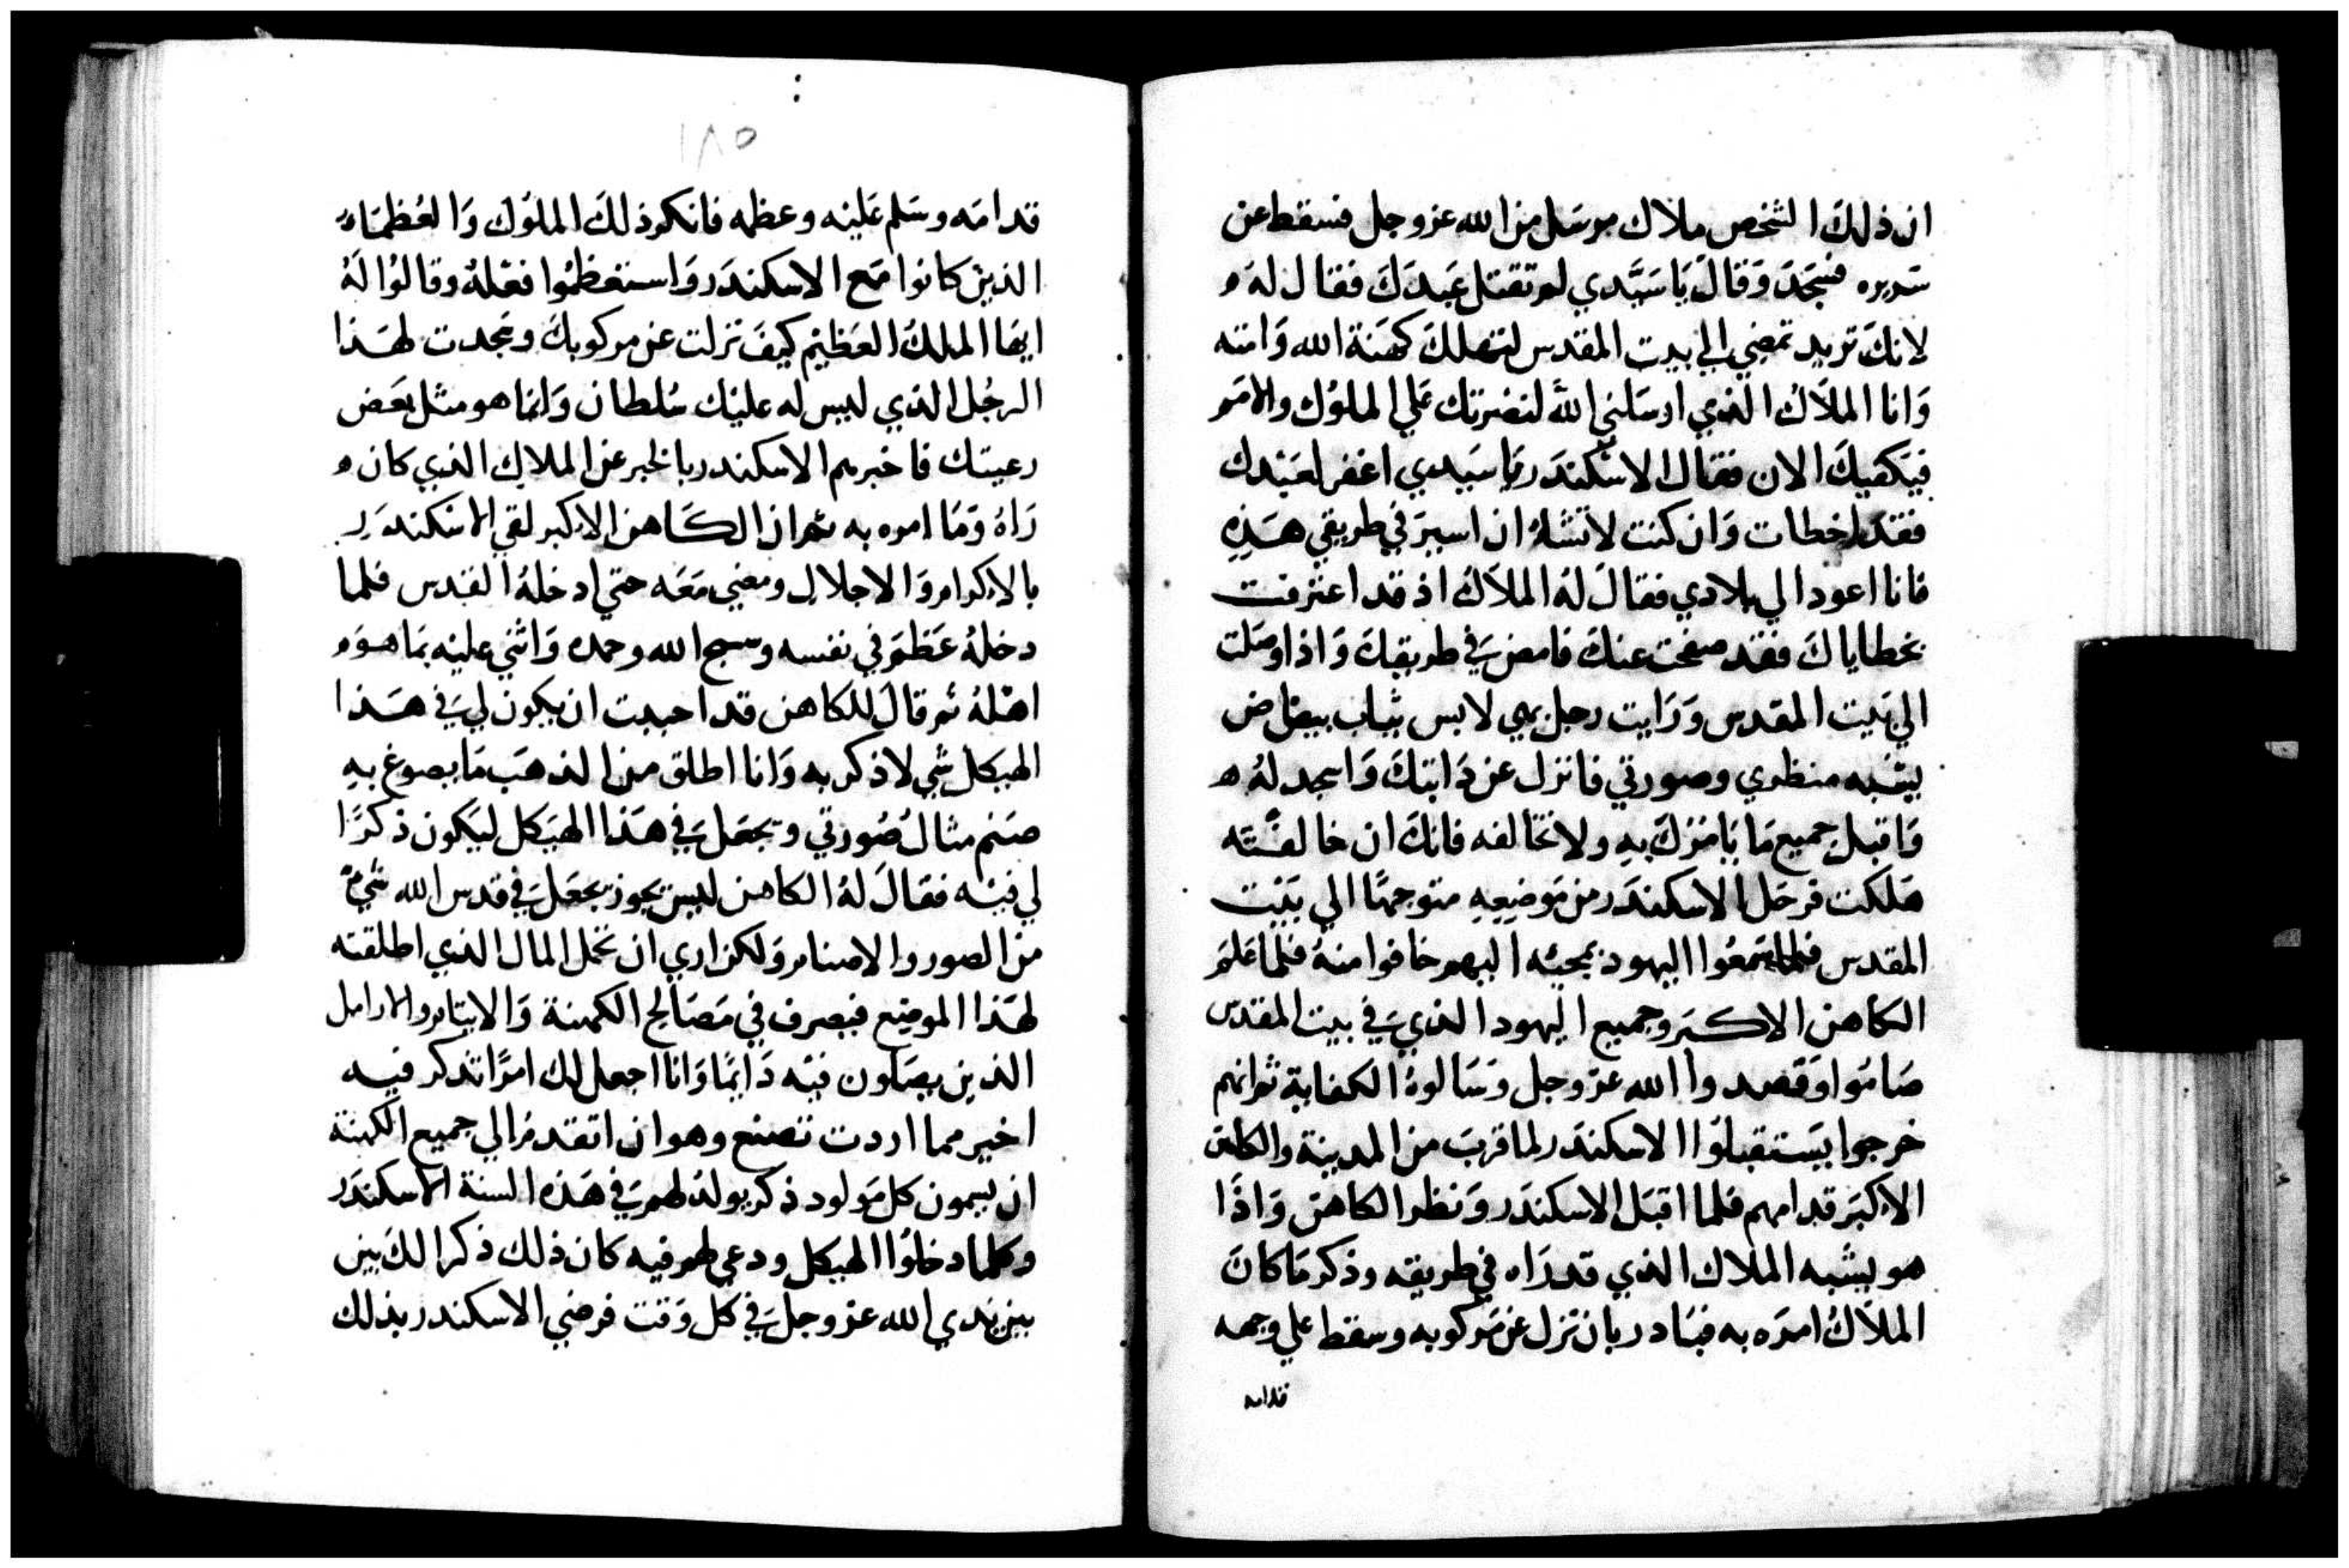 ان ذلك الشخص ملاك مرسل من الله عز وجل فسقط عن
سريره فسجد وقال يا سيدي لم تقتل عبدك فقال له
لانك تريد تمضي الي بيت المقدس لتهلك كهنة الله وامته
وانا الملاك الذي ارسلني الله لنصرتك علي الملوك والامم
فيكفيك الان فقال الاسكندر يا سيدي اغفر لعبدك
فقد اخطات وان كنت لا تشا ان اسير في طريقي هذه
فانا اعود الي بلادي فقال له الملاك اذ قد اعترفت
بخطاياك فقد صفحت عنك فامض في طريقك واذا وصلت
الي بيت المقدس ورايت رجل بهي لابس ثياب بيضاض
يشبه منظري وصورتي فانزل عن دابتك واسجد له
واقبل جميع ما يامرك به ولا تخالفه فانك ان خالفته
هلكت فرحل الاسكندر من موضعه متوجها الي بيت
المقدس فلما سمعوا اليهود بمجيئه اليهم خافوا منه فلما علم
الكاهن الاكبر وجميع اليهود الذي في بيت المقدس
صاموا وقصدوا الله عز وجل وسالوه الكفاية ثم انهم
خرجوا يستقبلوا الاسكندر لما قرب من المدينة والكاهن
الاكبر قدامهم فلما اقبل الاسكندر ونظر الكاهن واذا
هو يشبه الملاك الذي قد راه في طريقه وذكر ما كان
الملاك امره به فبادر بان نزل عن مركوبه وسقط علي وجهه
قدامه
١٨٥
قدامه وسلم عليه وعظمه فانكر ذلك الملوك والعظماء
الذين كانوا مع الاسكندر واستعظموا فعله وقالوا له
ايها الملك العظيم كيف نزلت عن مركوبك وسجدت لهذا
الرجل الذي ليس له عليك سلطان وانما هو مثل بعض
رعيتك فاخبرهم الاسكندر بالخبر عن الملاك الذي كان
راه وما امره به ثم ان الكاهن الاكبر لقي الاسكندر
بالاكرام والاجلال ومضي معه حتي ادخله القدس فلما
دخله عظم في نفسه وسبح الله وحمده واثني عليه بما هو
اهله ثم قال للكاهن قد احببت ان يكون لي في هذا
الهيكل شي لاذكر به وانا اطلق من الذهب ما يصوغ به
صنم مثال صورتي ويجعل في هذا الهيكل ليكون ذكرا
لي فيه فقال له الكاهن ليس يجوز يجعل في قدس الله شي
من الصور والاصنام ولكن اري ان تجعل المال الذي اطلقته
لهذا الموضع فيصرف في مصالح الكهنة والايتام والارامل
الذين يصلون فيه دايما وانا اجعل لك امرا تذكر فيه
اخير مما اردت تصنع وهو ان اتقدم الي جميع الكهنة
ان يسمون كل مولود ذكر يولد لهم في هذه السنة الاسكندر
وكلما دخلوا الهيكل ودعي لهم فيه كان ذلك ذكرا لك بين
بين يدي الله عز وجل في كل وقت فرضي الاسكندر بذلك